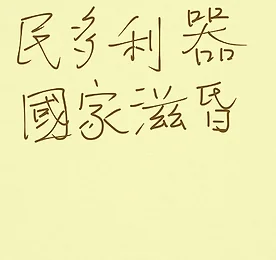 民多利器
國家滋昏